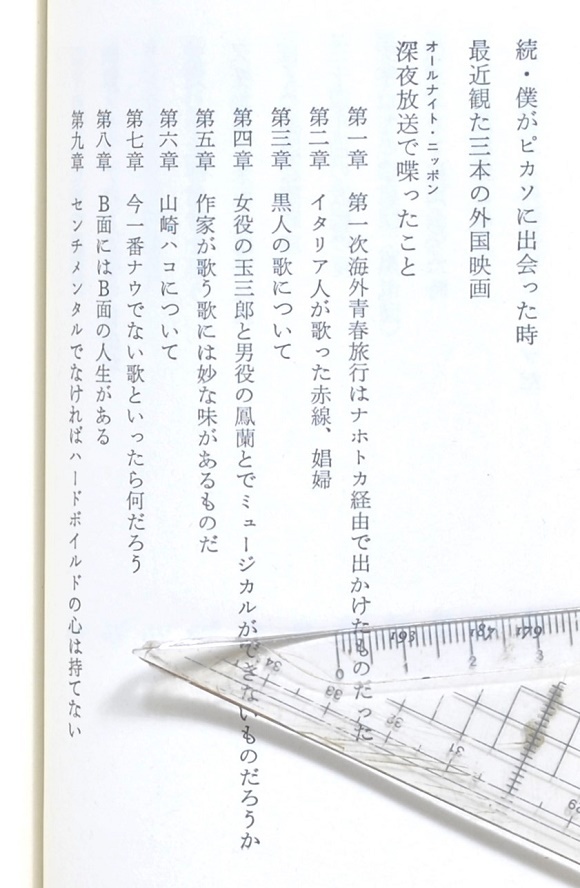 続・僕がピカソに出会った時
最近観た三本の外国映画
オールナイト・ニッポン
深夜放送で喋ったこと
第一章 第一次海外青春旅行はナホトカ経由で出かけたものだった
第二章 イタリア人が歌った赤線、娼婦
第三章 黒人の歌について
第四章 女役の玉三郎と男役の鳳蘭とでミュージカルができないものだろうか
第五章 作家が歌う歌には妙な味があるものだ
第六章 山崎ハコについて
第七章 今一番ナウでない歌といったら何だろう
第八章 B面にはB面の人生がある
第九章 センチメンタルでなければハードボイルドの心は持てない
193 187 179
0 1 2 3
34 33 32 31